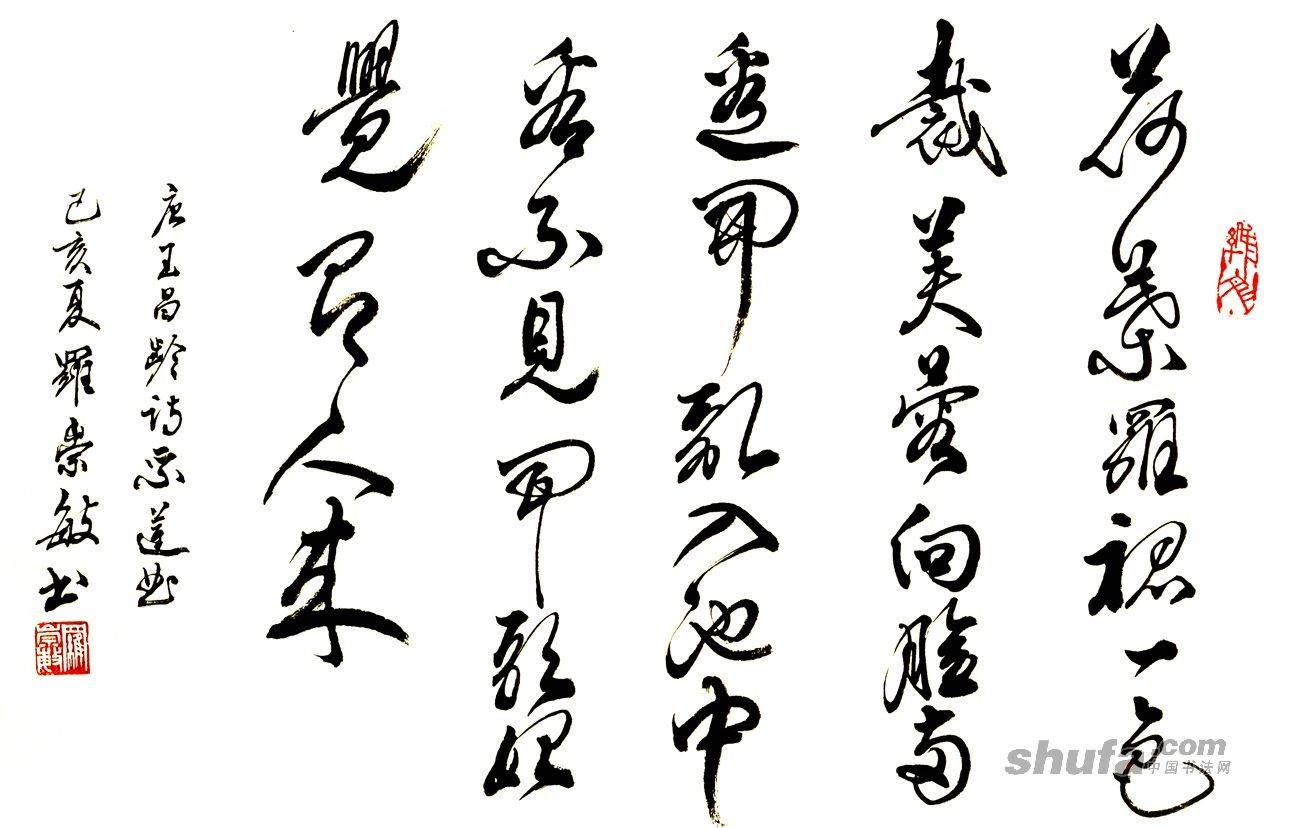 荷葉羅裙一色
裁芙蓉向臉两
邊開亂入池中
看不見聞歌始
覺有人来
唐王昌齡诗采蓮曲
己亥夏羅崇敏书
羅崇敏
shufa.com
中国书法网